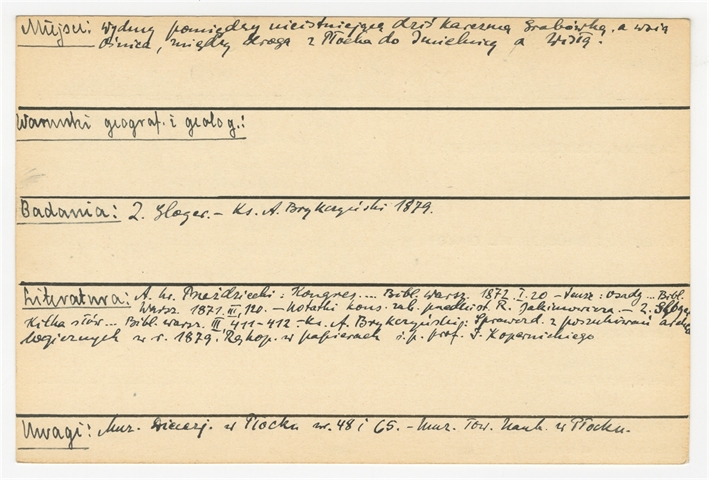 Miejsce: wydmy pomiędzy nieistniejącą dziś karczmą Grabówką, a wsią
Ośnica, między drogą z Płocka do Imielnicy a Wisłą.
Warunki geograf. i geolog.:
Badania: Z. Gloger. – Ks. A. Brykczyński 1879.
Literatura: A. hr. Przeździecki: Kongres... Bibl. warsz. 1872. I. 20 – tenże: osady... Bibl.
Warsz. 1871. III, 120. – Notatki kons. zab. przedhist. R. Jakimowicza. – Z. Gloger
Kilka słów... Bibl. warsz. III 411-412 – Ks. A. Brykczyński: Sprawozd. z poszukiwań archeo
logicznych w r. 1879. Rękop. w papierach ś. p. prof. I. Kopernickiego
Uwagi: Muz. Diecezj. w Płocku nr. 48 i 65. – Muz. Tow. Nauk. w Płocku.